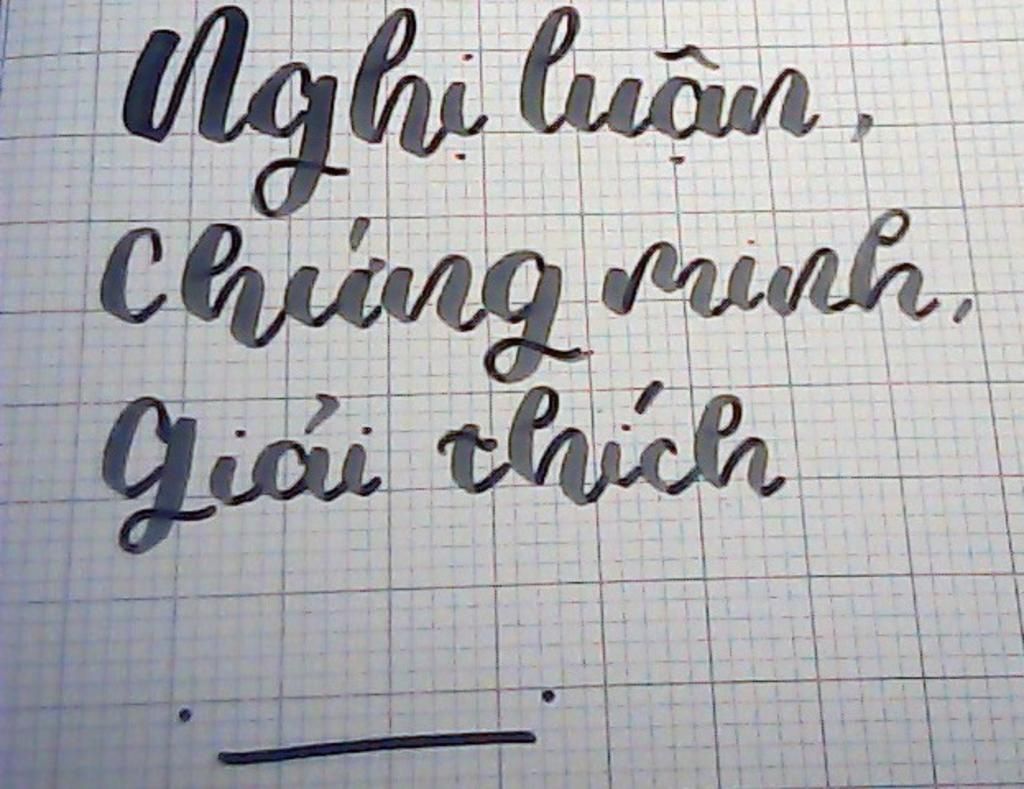 Nghị luận,
Chứng minh,
Giải thích